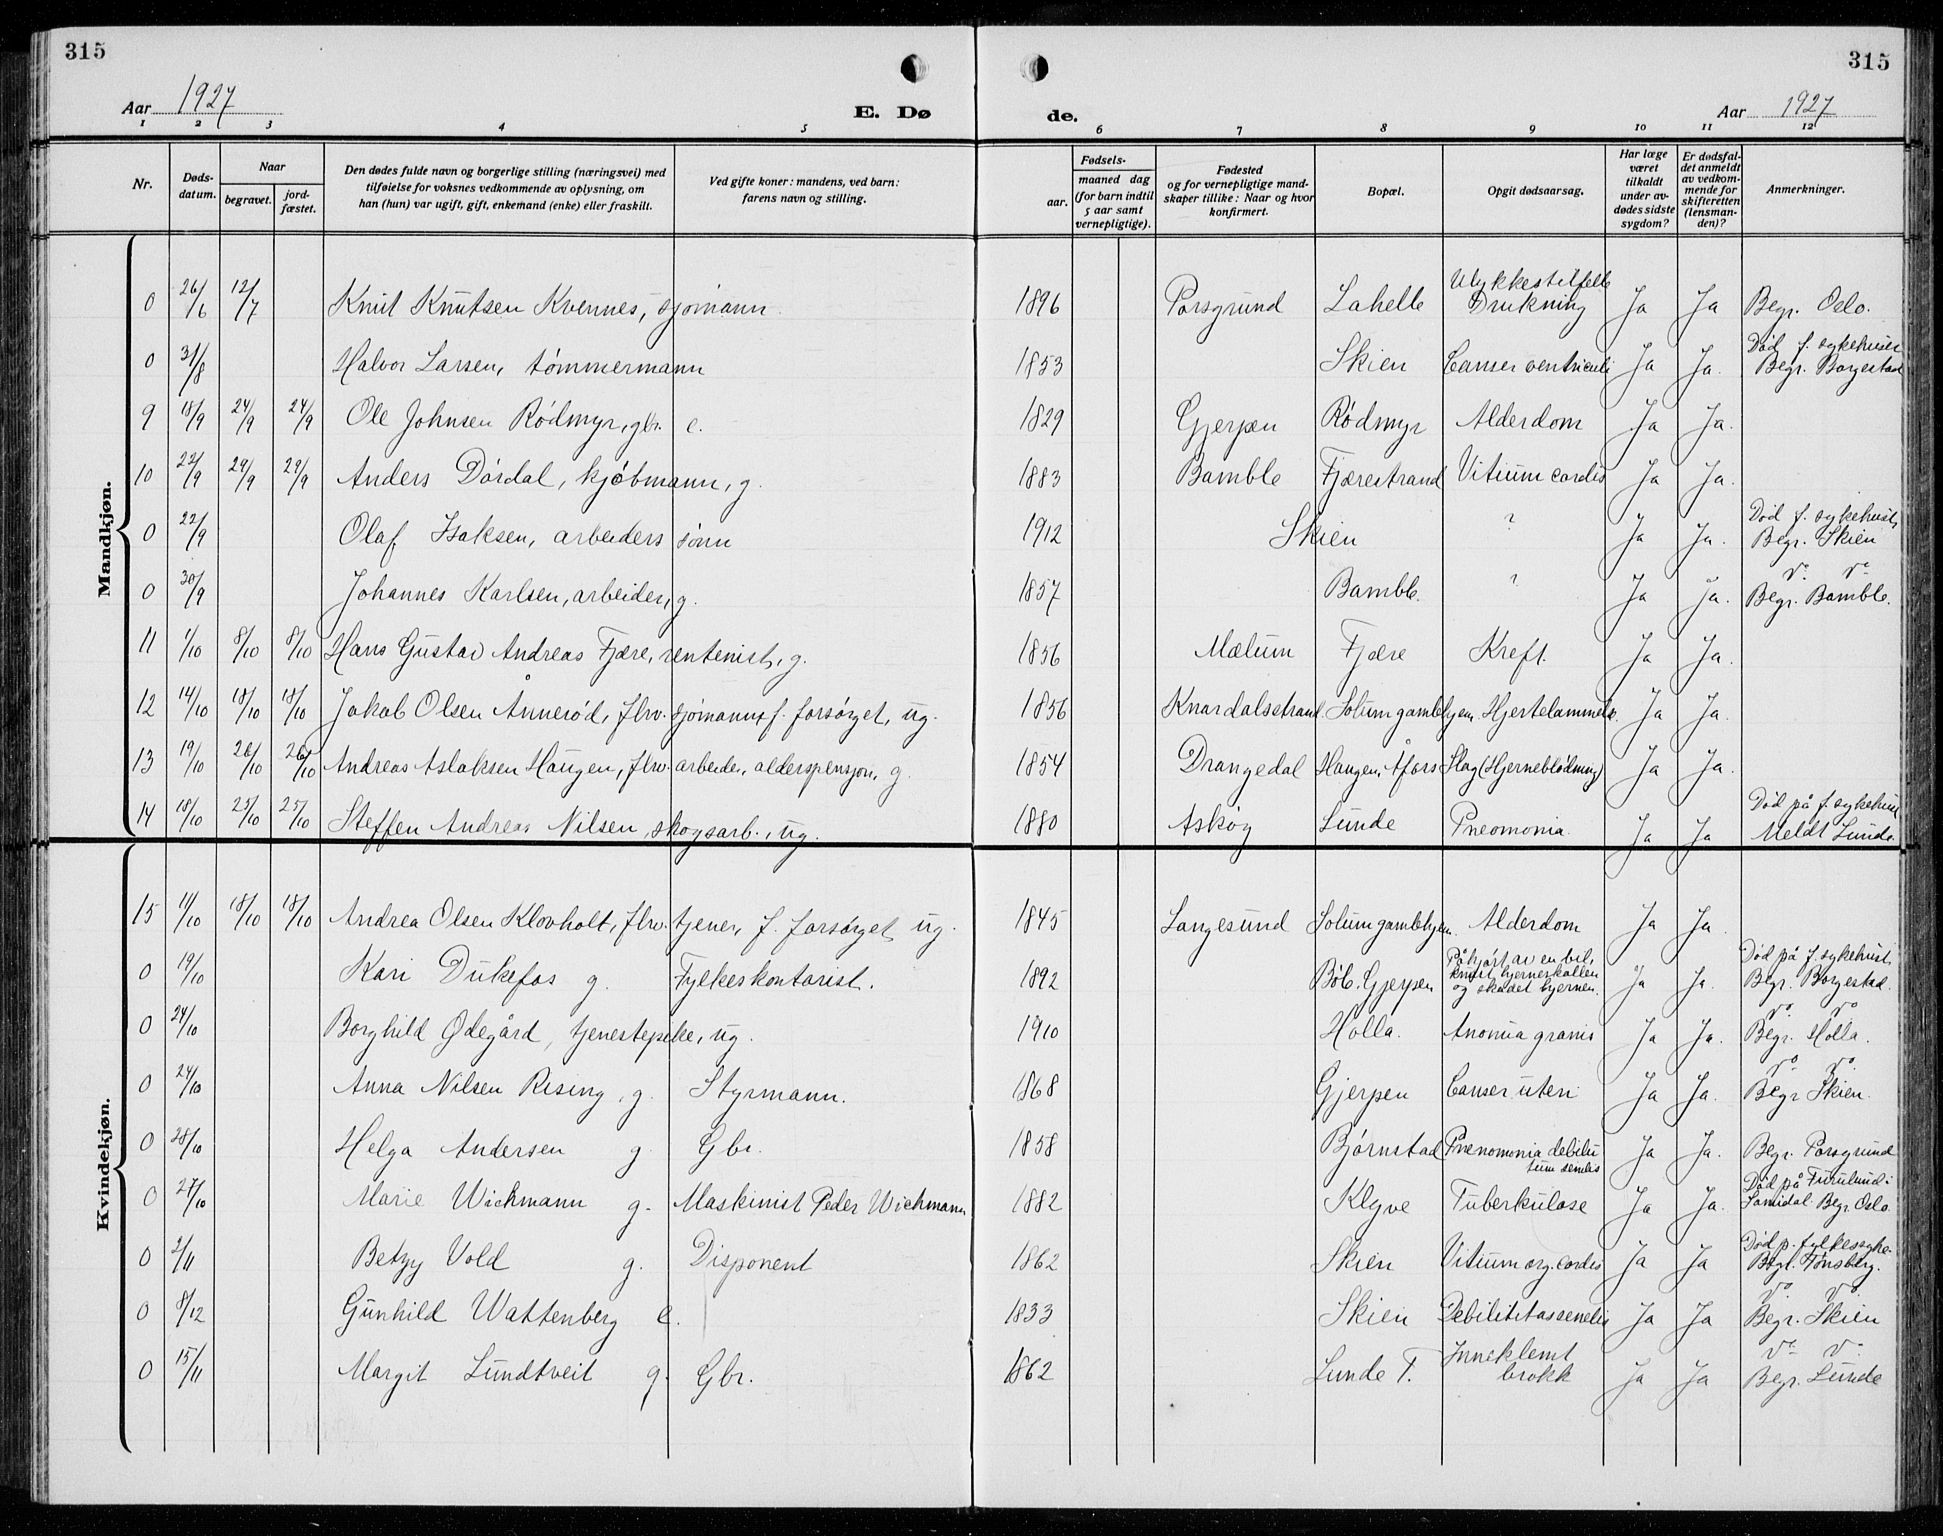 315
315
Aar 1927
E. Dø
de.
Aar 1927
1 2 3 4 5 6 7 8 9 10 11 12
Nr.
Døds-
datum.
Naar
begravet.
jord-
fæstet.
Den dødes fulde navn og borgerlige stilling (næringsvei) med
tilføielse for voksnes vedkommende av oplysning, om
han (hun) var ugift, gift, enkemand (enke) eller fraskilt.
Ved gifte koner: mandens, ved barn:
farens navn og stilling.
Fødsels-
aar.
maaned dag
(for barn indtil
5 aar samt
vernepligtige).
Fødested
og for vernepligtige mand-
skaper tillike: Naar og hvor
konfirmert.
Bopæl.
Opgit dødsaarsag.
Har læge
været
tilkaldt
under av-
dødes sidste
sygdom?
Er dødsfal-
det anmeldt
av vedkom-
mende for
skifteretten
(lensman-
den)?
Anmerkninger.
Mandkjøn.
0 26/6 12/7 Knut Knutsen Kvennes, sjømann. 1896 Porsgrund Lahelle Ulykkestilfelle Drukning Ja Ja Begr. Oslo.
0 31/8 Halvor Larsen, tømmermann 1853 Skien Canser ventriculi Ja Ja. Død f. sykehuset Begr. Borgestad
9 18/9 24/9 24/9 Ole Johnsen Rødmyr, gbr. e. 1829 Gjerpen Rødmyr Alderdom Ja Ja.
10 22/9 29/9 29/9 Anders Dørdal, kjøbmann, g. 1883 Bamble Fjærestrand Vitium cordis Ja Ja.
0 22/9 Olaf Isaksen, arbeiders sønn 1912 Skien ? Ja Ja. Død f. sykehust, Begr. Skien
0 30/9 Johannes Karlsen, arbeider, g. 1857 Bamble. ? Ja Ja. do do Begr. Bamble.
11 1/10 8/10 8/10 Hans Gustav Andreas Fjære, rentenist, g. 1856 Mælum Fjære Kreft. Ja Ja.
12 14/10 18/10 18/10 Jakob Olsen Ånnerød, fhv. sjømann, f. forsørget, ug. 1856 Knardalsstrand Solum gamlehjem Hjertelammelse. Ja Ja.
13 19/10 26/10 26/10 Andreas Aslaksen Haugen, fhv. arbeider, alderspensjon, g. 1854 Drangedal Haugen, Åfoss Slag (Hjerneblødning) Ja Ja.
14 18/10 25/10 25/10 Steffen Andreas Nilsen, skogsarb., ug. 1880 Askøy Lunde Pneomonia. Ja Ja Død på f. sykehus Meldt Lunde.
Kvindekjøn.
15 14/10 18/10 18/10 Andrea Olsen Klovholt, fhv. tjener, f. forsørget ug. 1845 Langesund Solum gamlehjem. Alderdom Ja Ja.
0 19/10 Kari Dukefos g. Fylkeskontorist. 1892 Böle, Gjerpen Påkjørt av en bil, knust hjerneskallen og skadet hjernen. Ja Ja. Død på f. sykehust. Begr. Borgestad.
0 24/10 Borghild Ødegård, tjenestepike, ug. 1910 Holla. Anomia gravis Ja Ja. do do Begr. Holla.
0 24/10 Anna Nilsen Rising, g. Styrmann. 1868 Gjerpen Canser uteri Ja Ja. do do. Begr Skien.
0 28/10 Helga Andersen g. Gbr. 1858 Bjørnstad Pnenomonia debilitum senelis Ja Ja. Begr. Porsgrund
0 27/10 Marie Wichmann g. Maskinist Peder Wichmann 1882 Klyve Tuberkulose Ja Ja. Død på Furulund i Begr. Oslo.
0 2/11 Betzy Vold g. Disponent 1862 Skien Vitium org. cordis Ja Ja Død p. fylkessyke. Begr. Tønsberg.
0 8/12 Gunhild Wattenberg e. 1833 Skien Debilititas senelis Ja Ja do do. Begr. Skien
0 15/11 Margit Lundtveit g. Gbr. 1862 Lunde T. Inneklemt brokk Ja Ja do do. Begr. Lunde